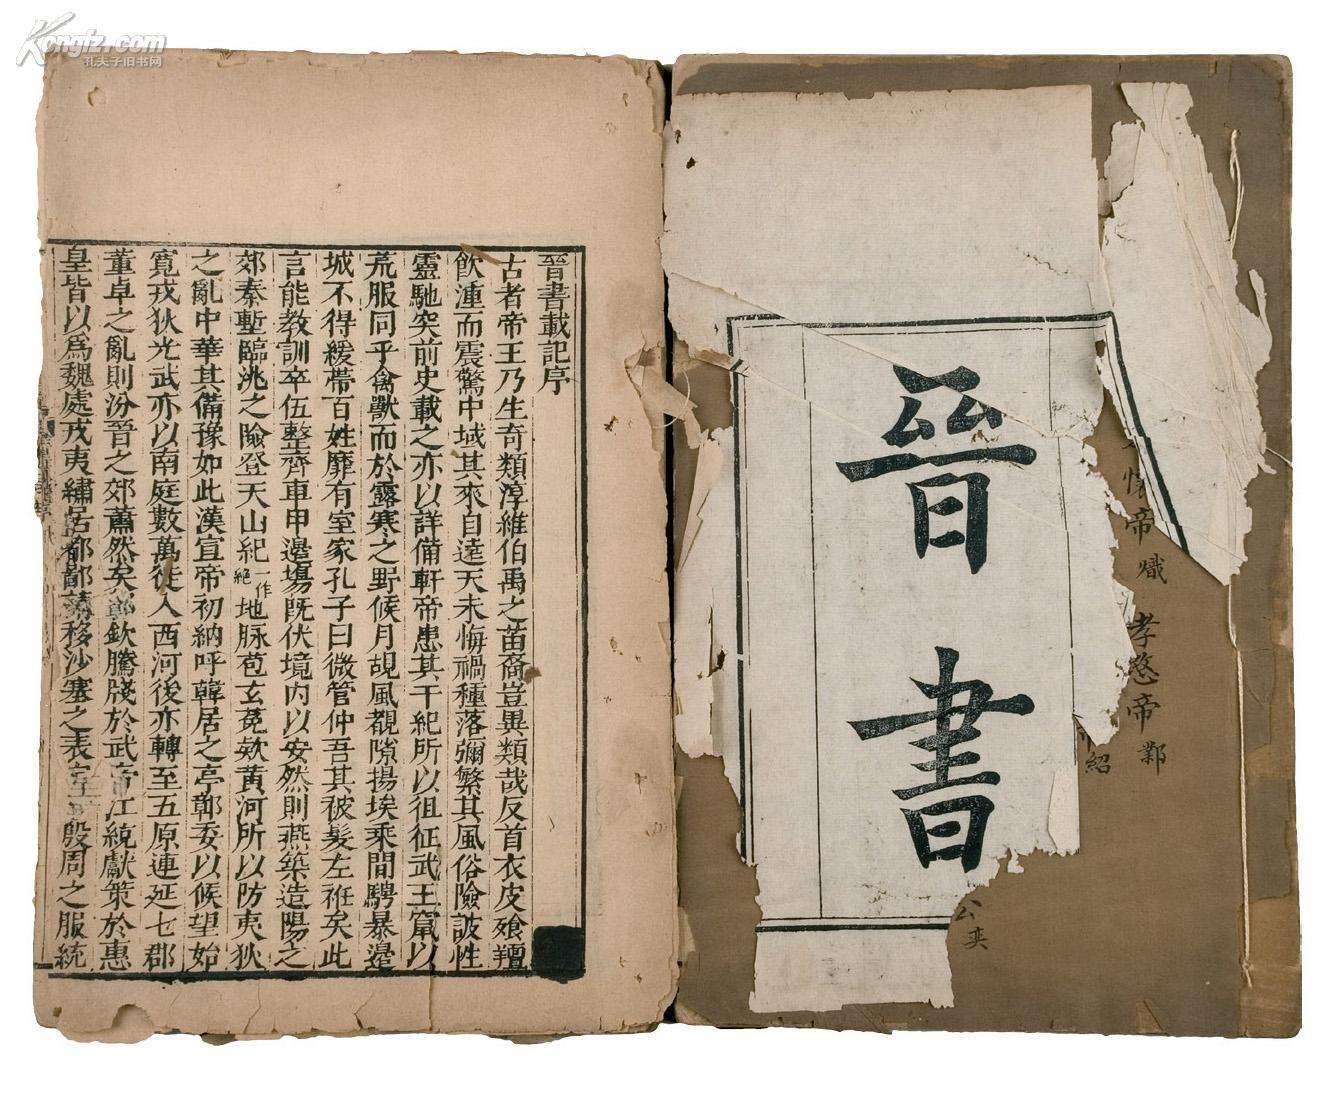 Kongfz.com
孔夫子旧书网
晉書
懷帝 熾 孝愍帝 鄴
紹
公奕
晉書載記序
古者帝王乃生奇類淳維伯禹之苗裔豈異類哉反首衣皮飧羶
飲湩而震驚中域其來自遠天未悔禍種落彌繁其風俗險詖性
靈馳突前史載之亦以詳備軒帝患其干紀所以徂征武王竄以
荒服同乎禽獸而於露寒之野候月覘風覩隙揚埃乘間騁暴邊
城不得緩帶百姓靡有室家孔子曰微管仲吾其被髮左袵矣此
言能教訓卒伍整齊車甲邊塲旣伏境內以安然則燕築造陽之
郊秦塹臨洮之險登天山紀一作絕地脉苞玄菟欵黃河所以防夷狄
之亂中華其備豫如此漢宣帝初納呼韓居之亭鄣委以候望始
寬戎狄光武亦以南庭數萬徙入西河後亦轉至五原連延七郡
董卓之亂則汾晉之郊蕭然矣郭欽騰牋於武帝江統獻策於惠
皇皆以爲魏處戎夷繡居都鄙請移沙塞之表定一殷周之服統